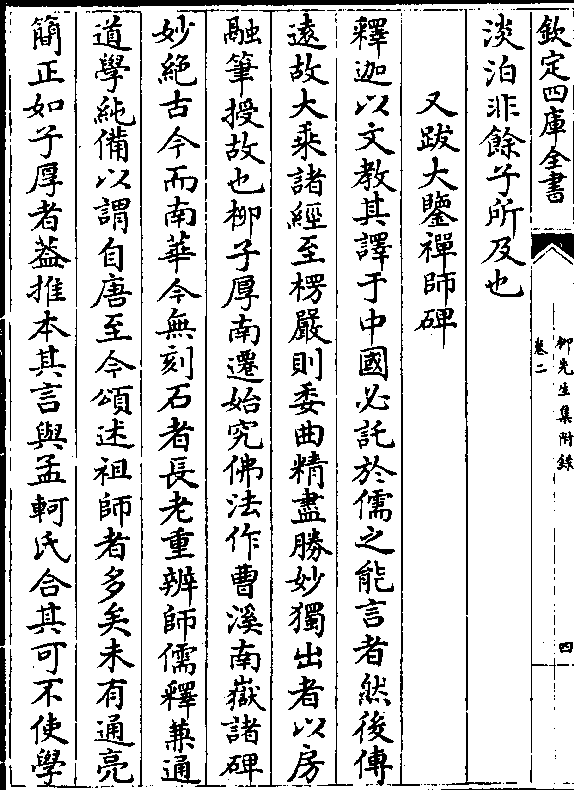 欽定四庫全書
柳先生集附錄
卷二
四
淡泊非餘子所及也
又跋大鑒禪師碑
釋迦以文教其譯于中國必託於儒之能言者然後傳
遠故大乘諸經至楞嚴則委曲精盡勝妙獨出者以房
融筆授故也栁子厚南遷始究佛法作曹溪南嶽諸碑
妙絶古今而南華今無刻石者長老重辨師儒釋兼通
道學純備以謂自唐至今頌述祖師者多矣未有通亮
簡正如子厚者葢推本其言與孟軻氏合其可不使學